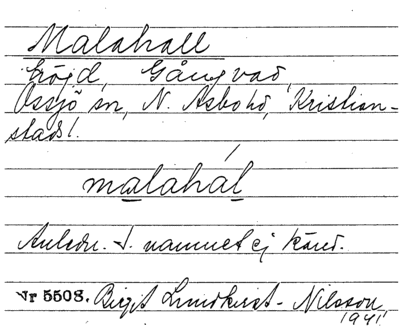 Malahall
höjd, Gångvad,
Össjö sn, N. Åsbo hd, Kristian-
stads l.
malahál
Anledn. t. namnet ej känd.
Nr 5508. Birgit Lundkvist-Nilsson
1941